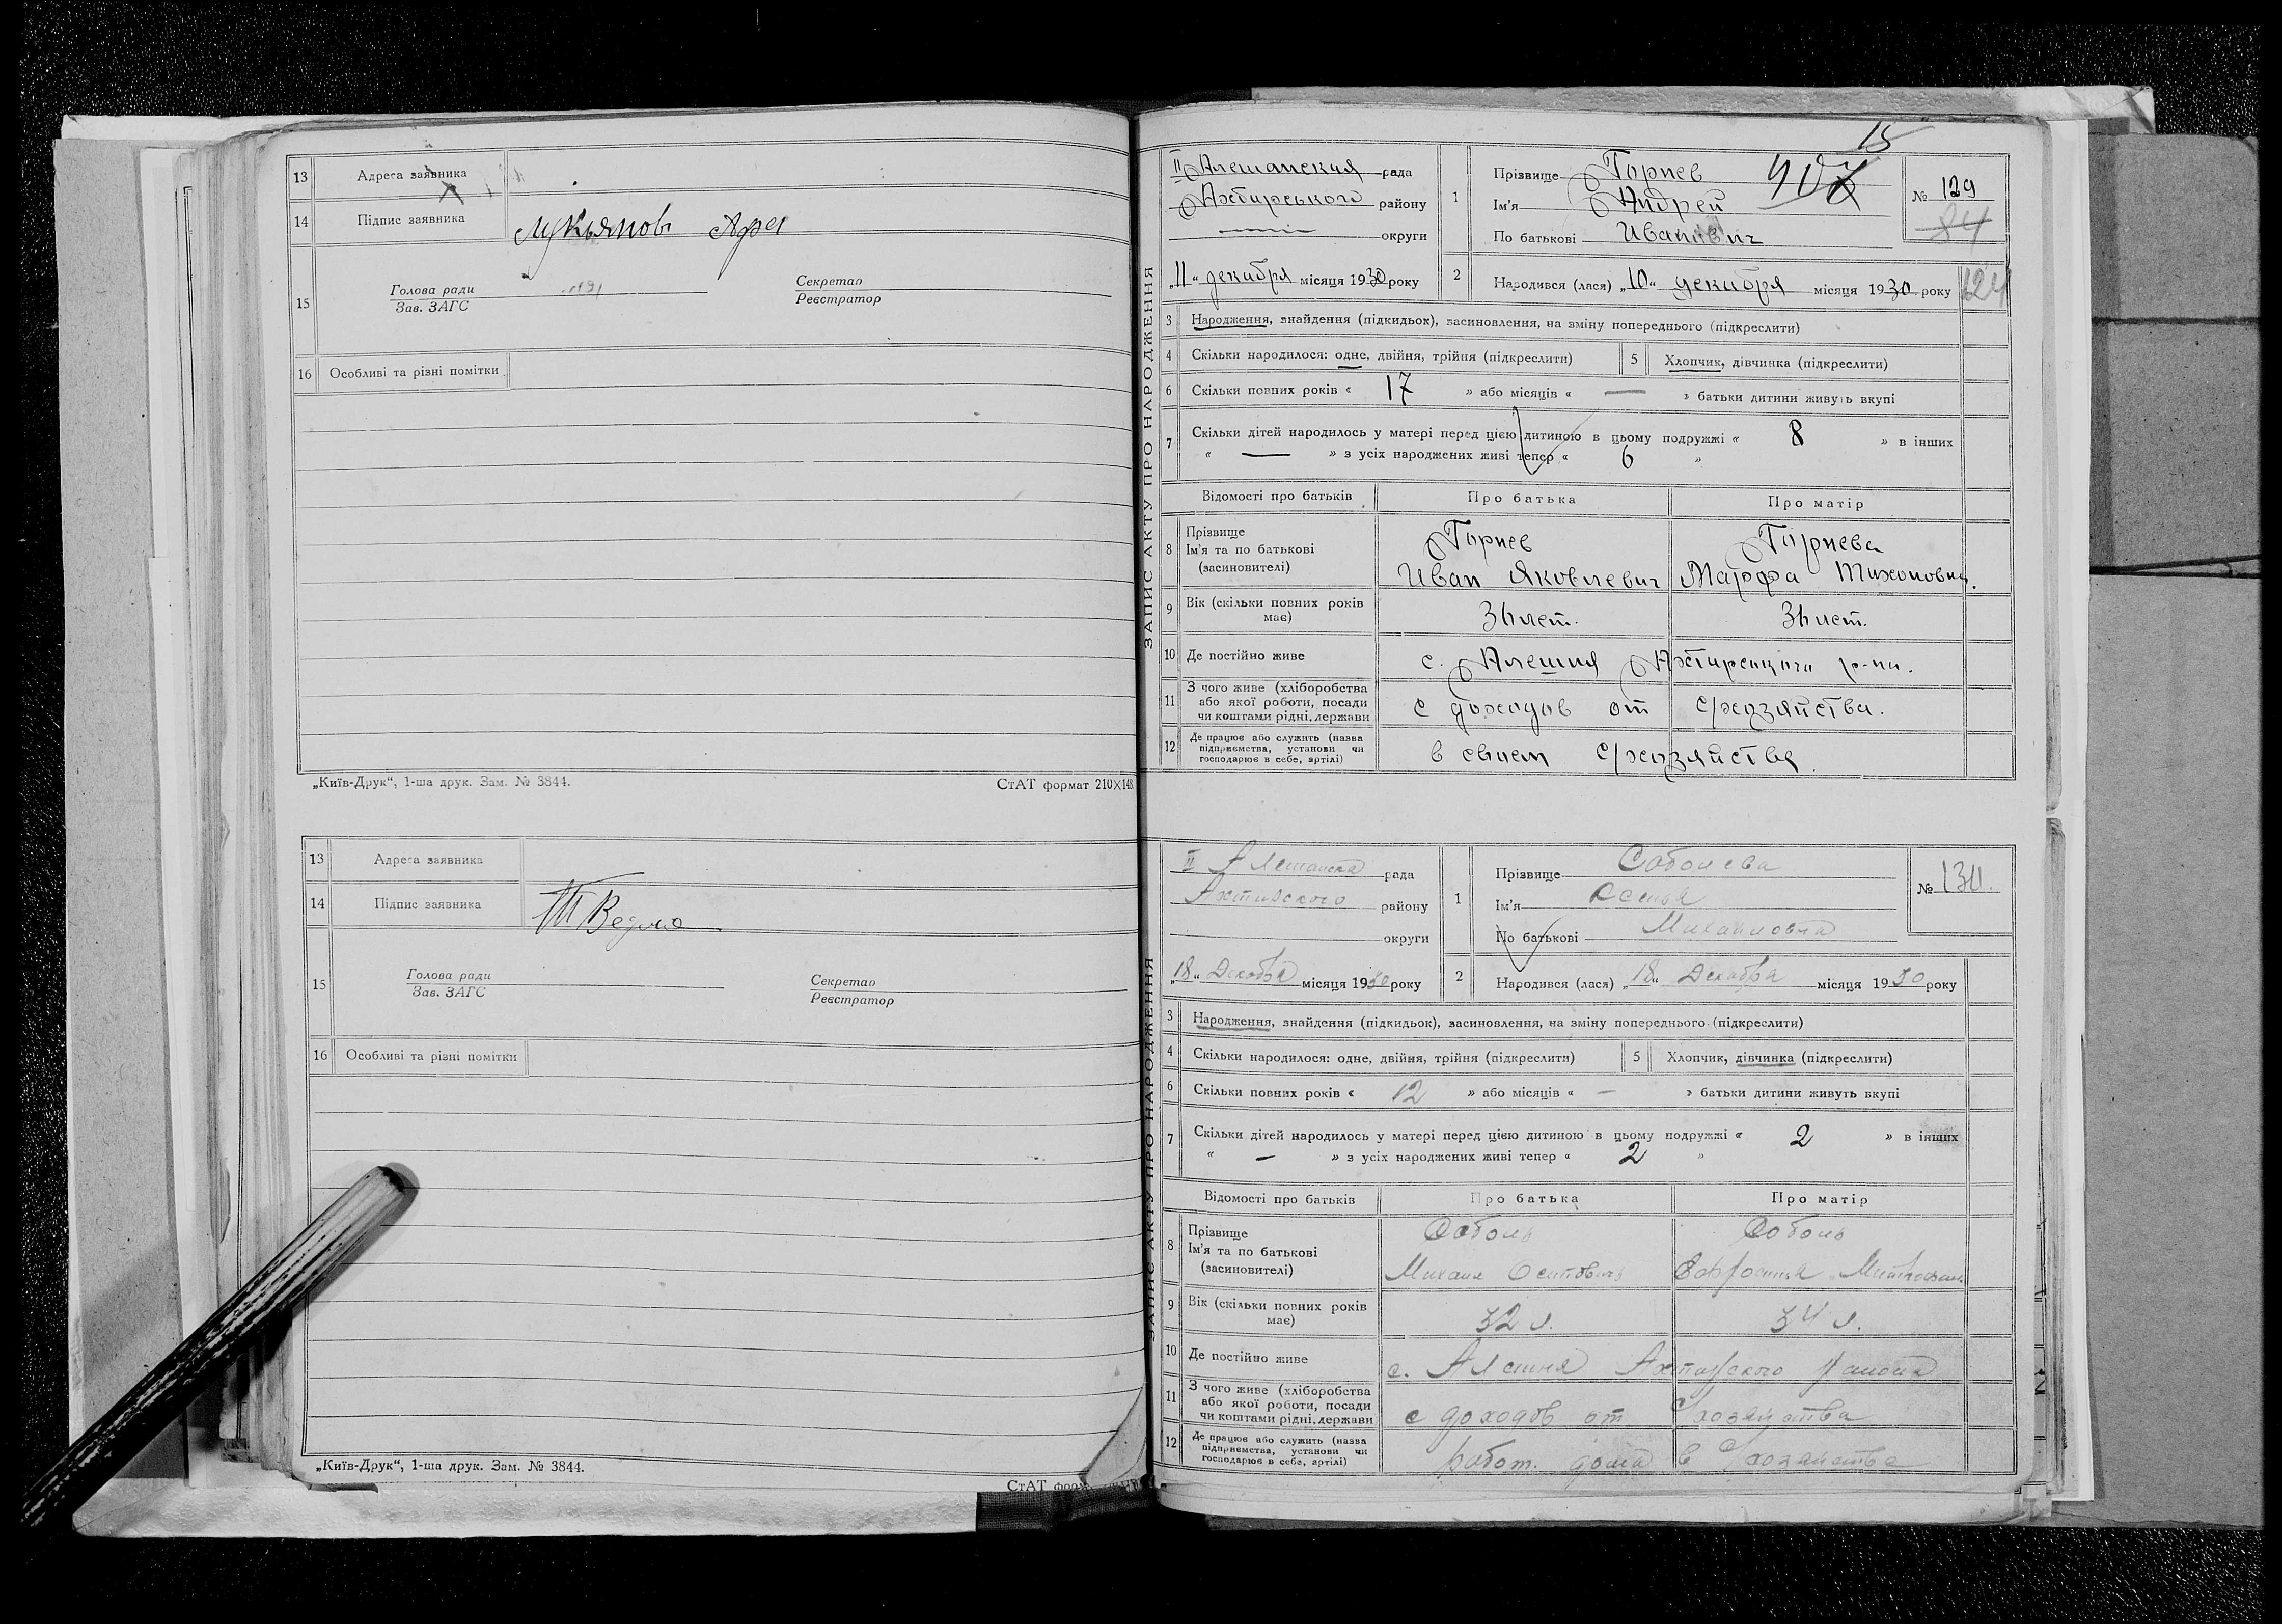 13 Адреса заявника
14 Підпис заявника Лукьянов
15 Голова ради Секретар
Зав. ЗАГС Реєстратор
16 Особливі та різні помітки
„Київ-Друк“, 1-ша друк. Зам. № 3844. СтАТ формат 210×148
13 Адреса заявника
14 Підпис заявника
15 Голова ради Секретар
Зав. ЗАГС Реєстратор
16 Особливі та різні помітки
„Київ-Друк“, 1-ша друк. Зам. № 3844.
СтАТ
15
ЗАПИС АКТУ ПРО НАРОДЖЕННЯ
II Алешанская рада
Ахтирського району
округи
„11“ декабря місяця 1930 року
1 Прізвище Горнев
Ім'я Андрей
По батькові Иванович
№ 129
84
2 Народився (лася) „10“ декабря місяця 1930 року
3 Народження, знайдення (підкидьок), засиновлення, на зміну попереднього (підкреслити)
4 Скільки народилося: одне, двійня, трійня (підкреслити) 5 Хлопчик, дівчинка (підкреслити)
6 Скільки повних років « 17 » або місяців « — » батьки дитини живуть вкупі
7 Скільки дітей народилось у матері перед цією дитиною в цьому подружжі « 8 » в інших
« — » з усіх народжених живі тепер « 6 »
Відомості про батьків Про батька Про матір
8 Прізвище Горнев Горнева
Ім'я та по батькові
(засновителі) Иван Яковлевич Марфа Тихоновна.
9 Вік (скільки повних років має) 36 лет. 36 лет.
10 Де постійно живе с. Алешня Ахтирского р-на.
11 З чого живе (хліборобства
або якої роботи, посади
чи коштами рідні, держави с доходов от с/хозяйства.
12 Де працює або служить (назва
підприємства, установи чи
господарює в себе, артілі) в своем с/хозяйстве.
ЗАПИС АКТУ ПРО НАРОДЖЕННЯ
II Алешанска рада
Ахтирского району
округи
„18“ Декабря місяця 1930 року
1 Прізвище Соболева
Ім'я
По батькові Михайловна
№ 130.
2 Народився (лася) „18“ Декабря місяця 1930 року
3 Народження, знайдення (підкидьок), засиновлення, на зміну попереднього (підкреслити)
4 Скільки народилося: одне, двійня, трійня (підкреслити) 5 Хлопчик, дівчинка (підкреслити)
6 Скільки повних років « 12 » або місяців « — » батьки дитини живуть вкупі
7 Скільки дітей народилось у матері перед цією дитиною в цьому подружжі « 2 » в інших
« — » з усіх народжених живі тепер « 2 »
Відомості про батьків Про батька Про матір
8 Прізвище Соболь Соболь
Ім'я та по батькові
(засиновителі) Михаил Осипович Ефросинья
9 Вік (скільки повних років має) 32 л. 34 л.
10 Де постійно живе с. Алешня Ахтирского района
11 З чого живе (хліборобства
або якої роботи, посади
чи коштами рідні, держави с доходов от с/хозяйства
12 Де працює або служить (назва
підприємства, установи чи
господарює в себе, артілі) работ. дома в с/хозяйстве